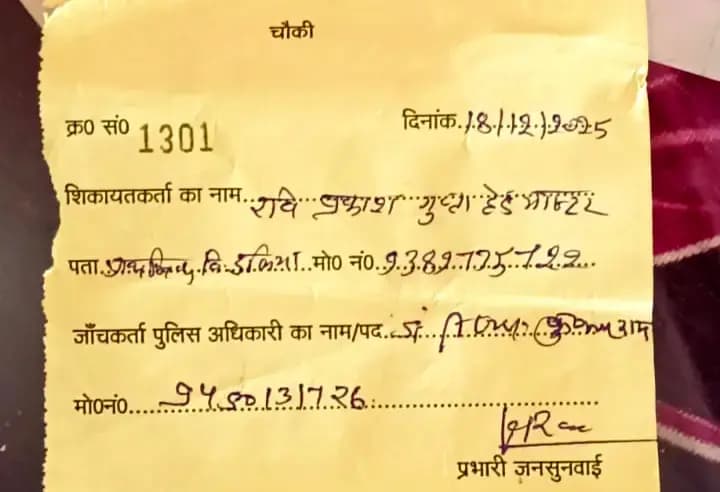 चौकी
क्र0 सं0 1301 दिनांक.18/12/2025
शिकायतकर्ता का नाम...रवि प्रकाश गुप्ता हेड मास्टर
पता. मो0 नं0.9389775722...
जाँचकर्ता पुलिस अधिकारी का नाम/पद.
मो0नं0....9450131726
प्रभारी जनसुनवाई